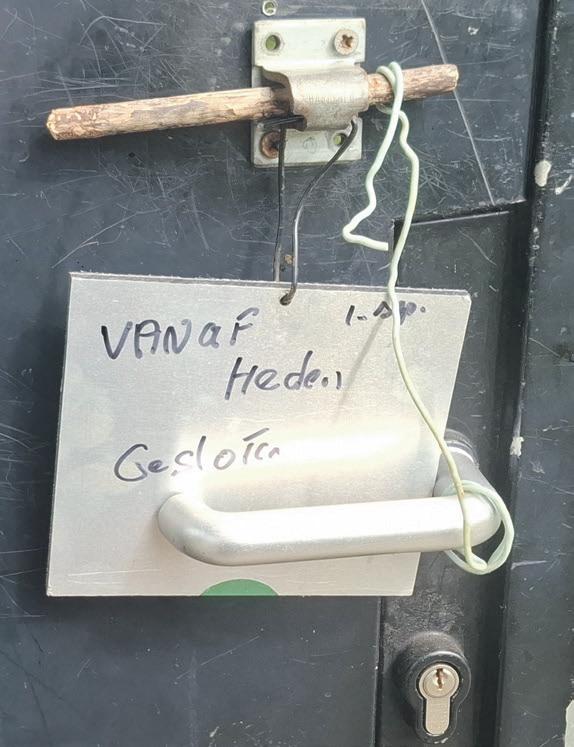 1-sp.
VANaF
Heden
Gesloten